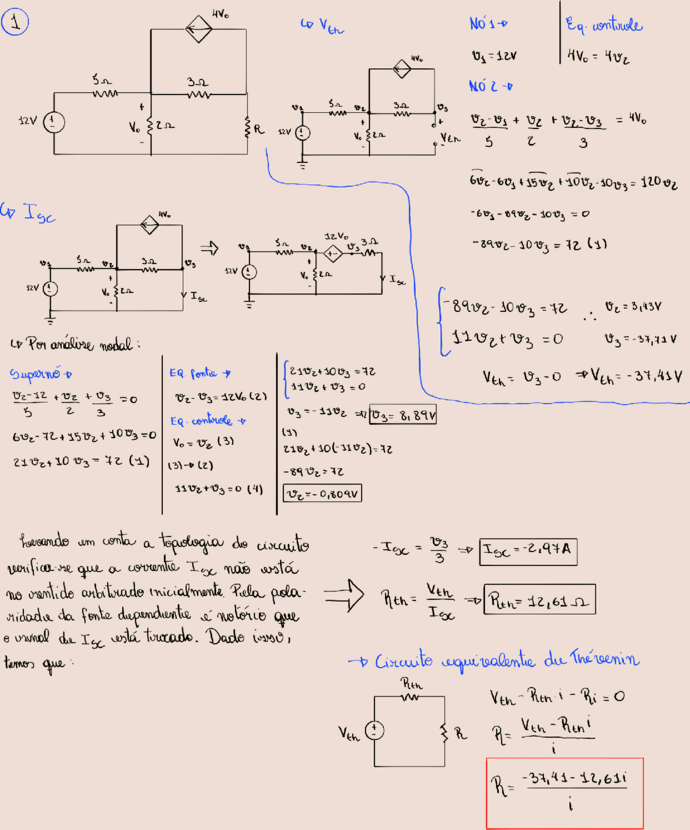 1
4V₀
5Ω
3Ω
12V
V₀
2Ω
R
+
-
↳ Vth
4V₀
v₁
5Ω
v₂
3Ω
v₃
12V
V₀
2Ω
Vth
+
-
Nó 1 →
v₁ = 12V
Eq. controle
4V₀ = 4v₂
Nó 2 →
(v₂-v₁)/5 + v₂/2 + (v₂-v₃)/3 = 4V₀
6v₂-6v₁+15v₂+10v₂-10v₃ = 120v₂
-6v₁-89v₂-10v₃ = 0
-89v₂-10v₃ = 72 (1)
-89v₂-10v₃ = 72 ∴ v₂ = 3,43V
11v₂+v₃ = 0 v₃ = -37,71V
Vth = v₃-0 ⇒ Vth = -37,41V
↳ Isc
4V₀
v₁
5Ω
v₂
3Ω
v₃
12V
V₀
2Ω
Isc
⇒
v₁
5Ω
v₂
12V₀
v₃
3Ω
12V
V₀
2Ω
Isc
↳ Por análise nodal:
Supernó →
(v₂-12)/5 + v₂/2 + v₃/3 = 0
6v₂-72+15v₂+10v₃=0
21v₂+10v₃ = 72 (1)
Eq. fonte →
v₂-v₃=12V₀ (2)
Eq. controle →
V₀ = v₂ (3)
(3)→(2)
11v₂+v₃=0 (4)
21v₂+10v₃=72
11v₂+v₃=0
v₃ = -11v₂ ⇒ v₃ = 8,89V
(1)
21v₂+10(-11v₂)=72
-89v₂=72
v₂=-0,809V
Levando em conta a topologia do circuito
verifica-se que a corrente Isc não está
no sentido arbitrado inicialmente. Pela pola-
ridade da fonte dependente é notório que
o sinal de Isc está trocado. Dado isso,
temos que:
⇒
-Isc = v₃/3 ⇒ Isc = -2,97A
Rth = Vth/Isc ⇒ Rth = 12,61Ω
→ Circuito equivalente de Thévenin
Rth
Vth
R
Vth - Rth i - Ri = 0
R = (Vth - Rth i)/i
R = (-37,41-12,61i)/i